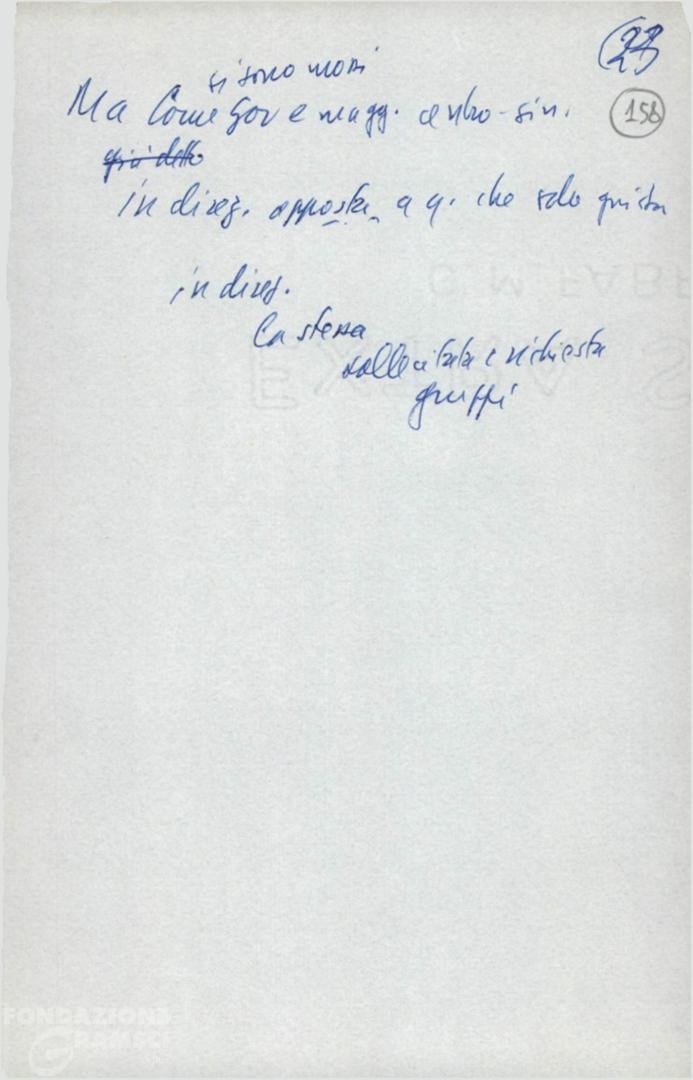 (23
158
si sono mossi
Ma Come Gov e magg. centro-sin.
già detto
in direz. opposta a q. che solo giusta
in direz.
la stessa
sollecitata e richiesta
gruppi
C. M. FABR
EXTRA S
FONDAZIONE
GRAMSCI